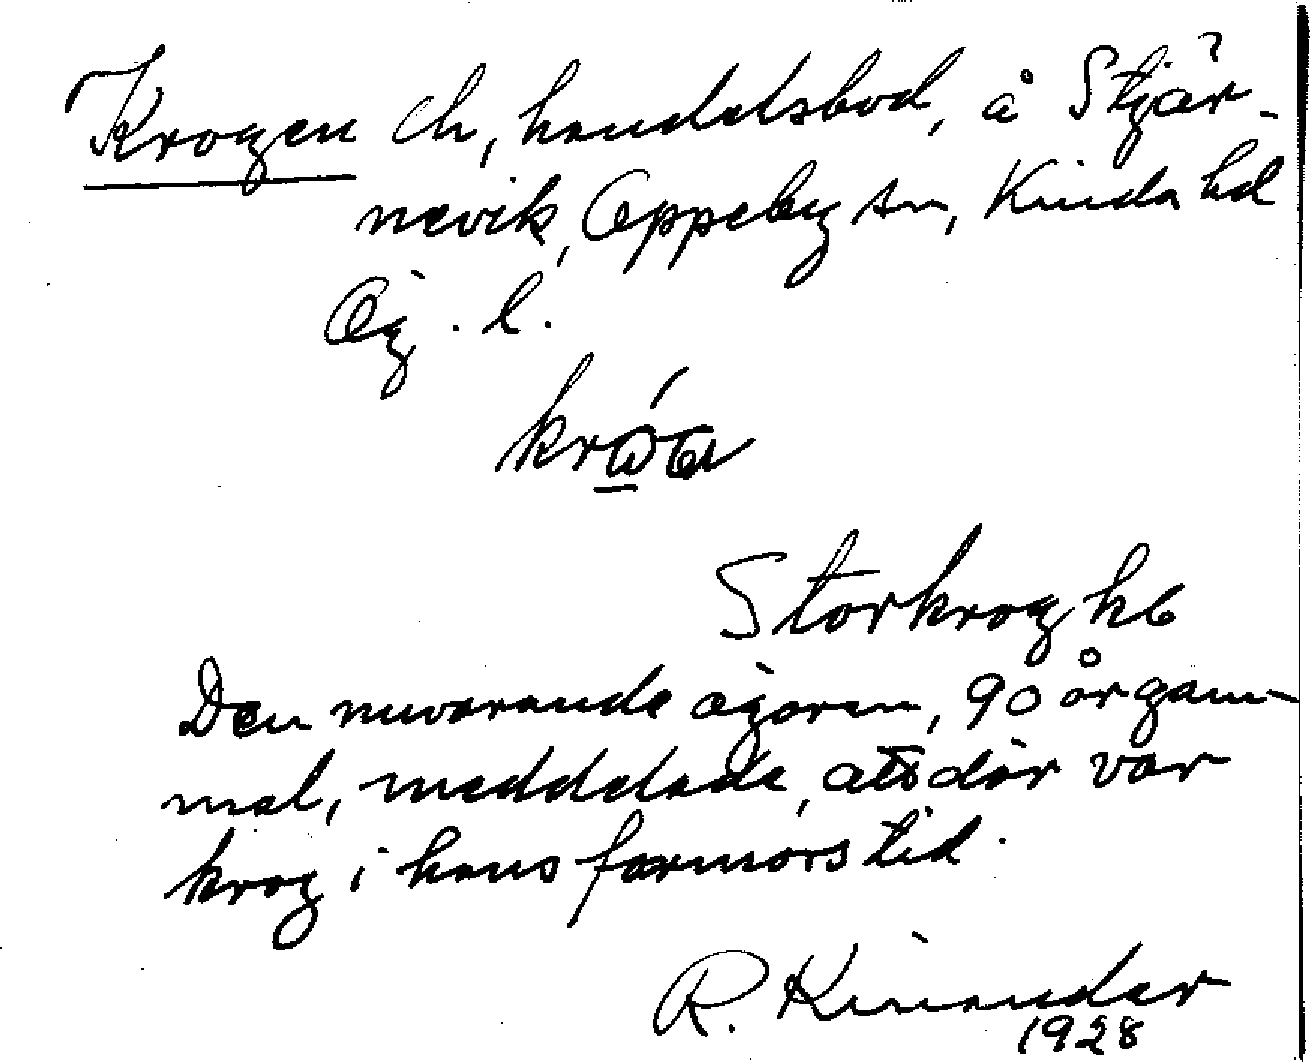 Krogen lh, handelsbod, å Stjär-
nevik, Oppeby sn, Kinda hd
Ög. l.
Storkrog hb
Den nuvarande ägaren, 90 år gam-
mal, meddelade, att där var
krog i hans farmors tid.
R. Kinander
1928